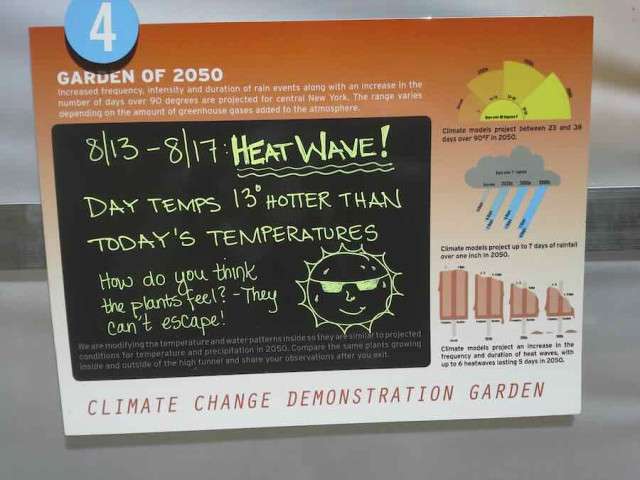 4
GARDEN OF 2050
Increased frequency, intensity and duration of rain events along with an increase in the
number of days over 90 degrees are projected for central New York. The range varies
depending on the amount of greenhouse gases added to the atmosphere.
8/13 - 8/17: HEAT WAVE!
DAY TEMPS 13° HOTTER THAN
TODAY'S TEMPERATURES
How do you think
the plants feel? - They
can't escape!
We are modifying the temperature and water patterns inside so they are similar to projected
conditions for temperature and precipitation in 2050. Compare the same plants growing
inside and outside of the high tunnel and share your observations after you exit.
Climate models project between 23 and 38
days over 90°F in 2050.
Climate models project up to 7 days of rainfall
over one inch in 2050.
Climate models project an increase in the
frequency and duration of heat waves, with
up to 6 heatwaves lasting 5 days in 2050.
CLIMATE CHANGE DEMONSTRATION GARDEN